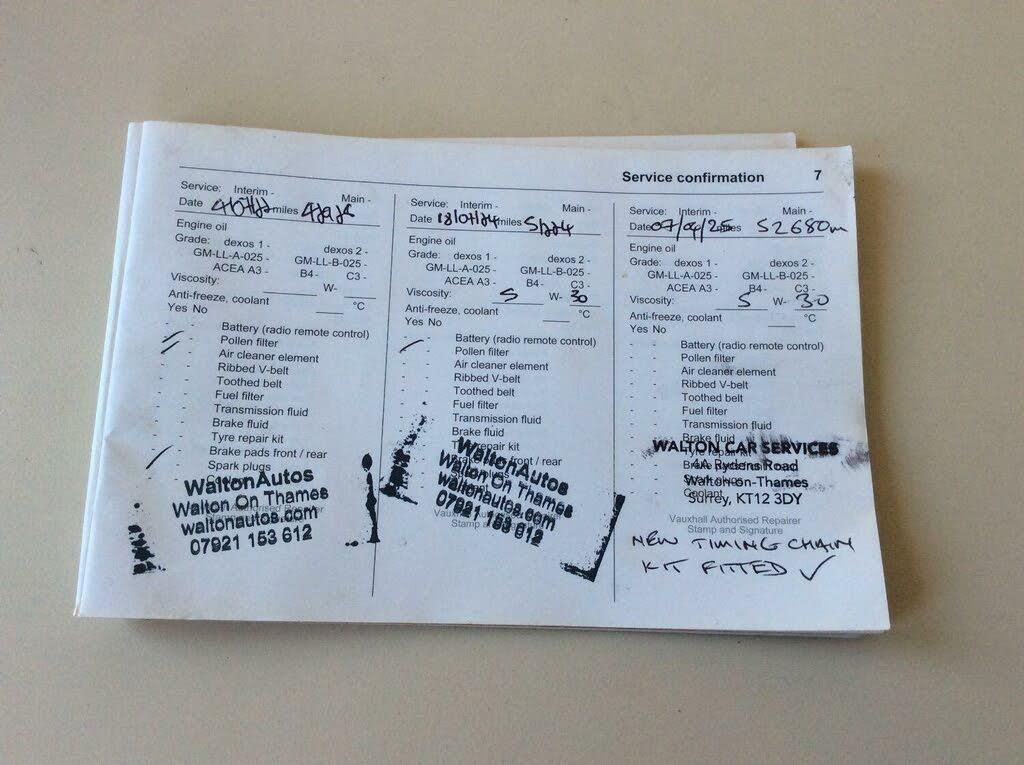 Service confirmation 7
Service: Interim - Main -
Date miles
Engine oil
Grade: dexos 1 - dexos 2 -
GM-LL-A-025 - GM-LL-B-025 -
ACEA A3 - B4 - C3 -
Viscosity: W-
Anti-freeze, coolant °C
Yes No
- - Battery (radio remote control)
- - Pollen filter
- - Air cleaner element
- - Ribbed V-belt
- - Toothed belt
- - Fuel filter
- - Transmission fluid
- - Brake fluid
- - Tyre repair kit
- - Brake pads front / rear
- - Spark plugs
WaltonAutos
Walton On Thames
waltonautos.com
07921 153 612
Service: Interim - Main -
Date 18/07/24 miles
Engine oil
Grade: dexos 1 - dexos 2 -
GM-LL-A-025 - GM-LL-B-025 -
ACEA A3 - B4 - C3 -
Viscosity: 5 W- 30
Anti-freeze, coolant °C
Yes No
- - Battery (radio remote control)
- - Pollen filter
- - Air cleaner element
- - Ribbed V-belt
- - Toothed belt
- - Fuel filter
- - Transmission fluid
- - Brake fluid
- - Tyre repair kit
- - Brake pads front / rear
WaltonAutos
Walton On Thames
waltonautos.com
07921 153 612
Service: Interim - Main -
Date 07/04/25 miles 52680m
Engine oil
Grade: dexos 1 - dexos 2 -
GM-LL-A-025 - GM-LL-B-025 -
ACEA A3 - B4 - C3 -
Viscosity: 5 W- 30
Anti-freeze, coolant °C
Yes No
- - Battery (radio remote control)
- - Pollen filter
- - Air cleaner element
- - Ribbed V-belt
- - Toothed belt
- - Fuel filter
- - Transmission fluid
- - Brake fluid
WALTON CAR SERVICES
4A Rydens Road
Walton-on-Thames
Surrey, KT12 3DY
Coolant
Vauxhall Authorised Repairer
Stamp and Signature
NEW TIMING CHAIN
KIT FITTED ✓